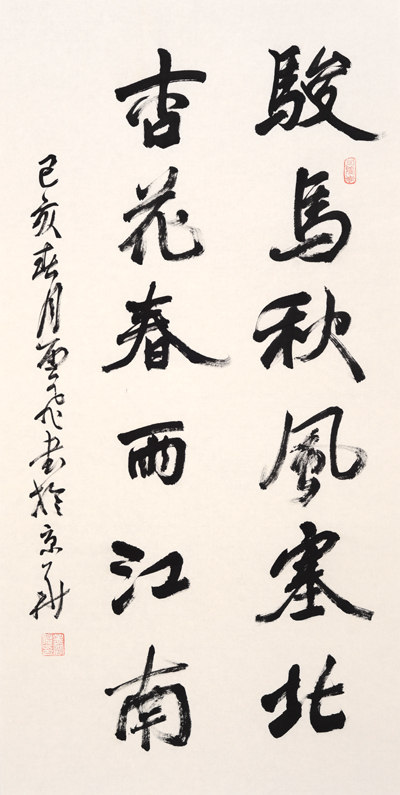 駿馬秋風塞北
杏花春雨江南
己亥春月雲飞书於京華